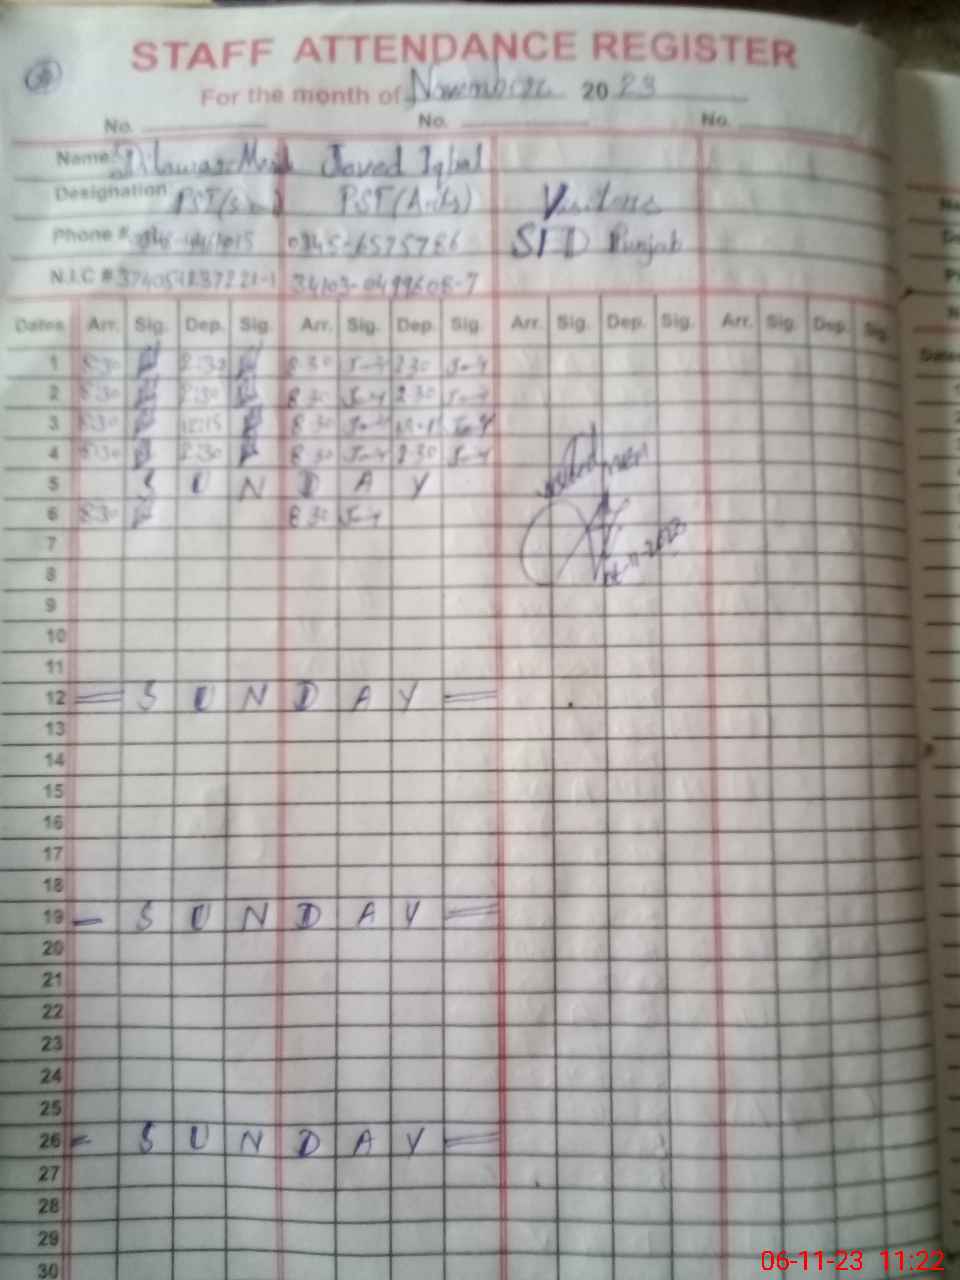 STAFF ATTENDANCE REGISTER
For the month of November 2023
No. No. No.
Name: Javed Iqbal
Designation PST(Arts) Visitors
Phone # 0345-6575786 SED Punjab
N.I.C #
Dates Arr. Sig. Dep. Sig. Arr. Sig. Dep. Sig. Arr. Sig. Dep. Sig. Arr. Sig. Dep. Sig.
1 8:30 2:30 8 30 2 30
2 8:30 2:30 8 30 2 30
3 8:30 12:15 8 30
4 8:30 2:30 8 30 2 30
5 S U N D A Y
6 8:30 8 30
7
8
9
10
11
12 S U N D A Y
13
14
15
16
17
18
19 S U N D A Y
20
21
22
23
24
25
26 S U N D A Y
27
28
29
30
06-11-23 11:22